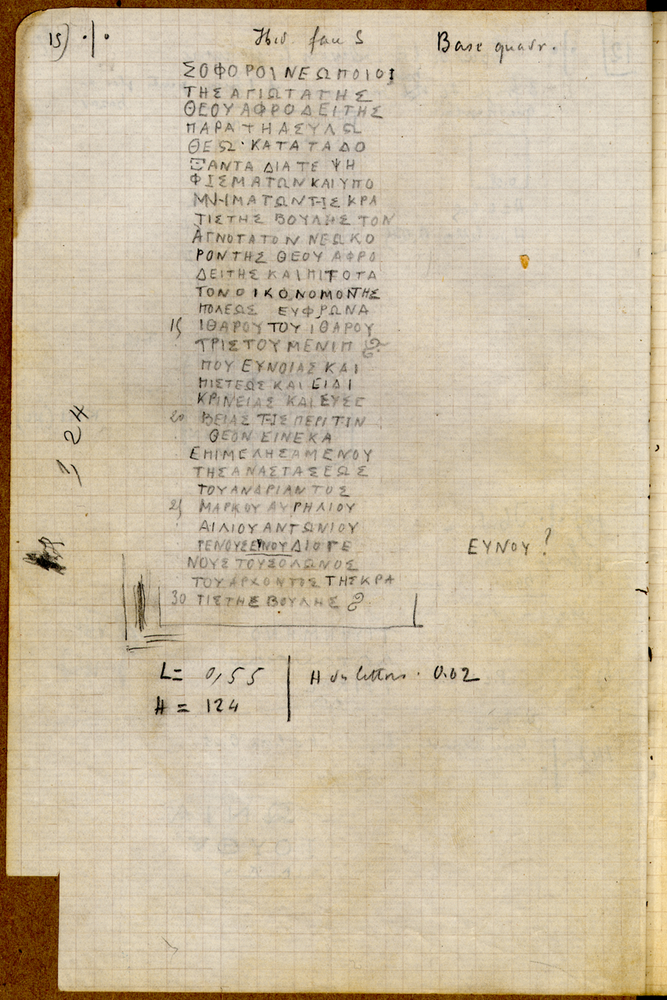 15) ·/·
Ibid. face S
Base quadr.
ΣΟΦΟΡΟΙ ΝΕΩΠΟΙΟΙ
ΤΗΣ ΑΓΙΩΤΑΤΗΣ
ΘΕΟΥ ΑΦΡΟΔΕΙΤΗΣ
ΠΑΡΑ ΤΗ ΑΣΥΛΩ
ΘΕΩ · ΚΑΤΑ ΤΑ ΔΟ
ΞΑΝΤΑ ΔΙΑ ΤΕ ΨΗ
ΦΙΣΜΑΤΩΝ ΚΑΙ ΥΠΟ
ΜΝΗΜΑΤΩΝ ΤΗΣ ΚΡΑ
ΤΙΣΤΗΣ ΒΟΥΛΗΣ ΤΟΝ
ΑΓΝΟΤΑΤΟΝ ΝΕΩΚΟ
ΡΟΝ ΤΗΣ ΘΕΟΥ ΑΦΡΟ
ΔΕΙΤΗΣ ΚΑΙ ΠΙΣΤΟΤΑ
ΤΟΝ ΟΙΚΟΝΟΜΟΝ ΤΗΣ
ΠΟΛΕΩΣ ΕΥΦΡΩΝΑ
15 ΙΘΑΡΟΥ ΤΟΥ ΙΘΑΡΟΥ
ΤΡΙΣ ΤΟΥ ΜΕΝΙΠ
ΠΟΥ ΕΥΝΟΙΑΣ ΚΑΙ
ΠΙΣΤΕΩΣ ΚΑΙ ΕΙΛΙ
ΚΡΙΝΕΙΑΣ ΚΑΙ ΕΥΣΕ
20 ΒΕΙΑΣ ΤΗΣ ΠΕΡΙ ΤΗΝ
ΘΕΟΝ ΕΙΝΕΚΑ
ΕΠΙΜΕΛΗΣΑΜΕΝΟΥ
ΤΗΣ ΑΝΑΣΤΑΣΕΩΣ
ΤΟΥ ΑΝΔΡΙΑΝΤΟΣ
25 ΜΑΡΚΟΥ ΑΥΡΗΛΙΟΥ
ΑΙΛΙΟΥ ΑΝΤΩΝΙΟΥ
ΓΕΝΟΥΣ ΕΥΝΟΥ ΔΙΟΓΕ
ΕΥΝΟΥ?
ΝΟΥΣ ΤΟΥ ΣΟΛΩΝΟΣ
ΤΟΥ ΑΡΧΟΝΤΟΣ ΤΗΣ ΚΡΑ
30 ΤΙΣΤΗΣ ΒΟΥΛΗΣ
L = 0,55 | H des lettres. 0.02
H = 124
124